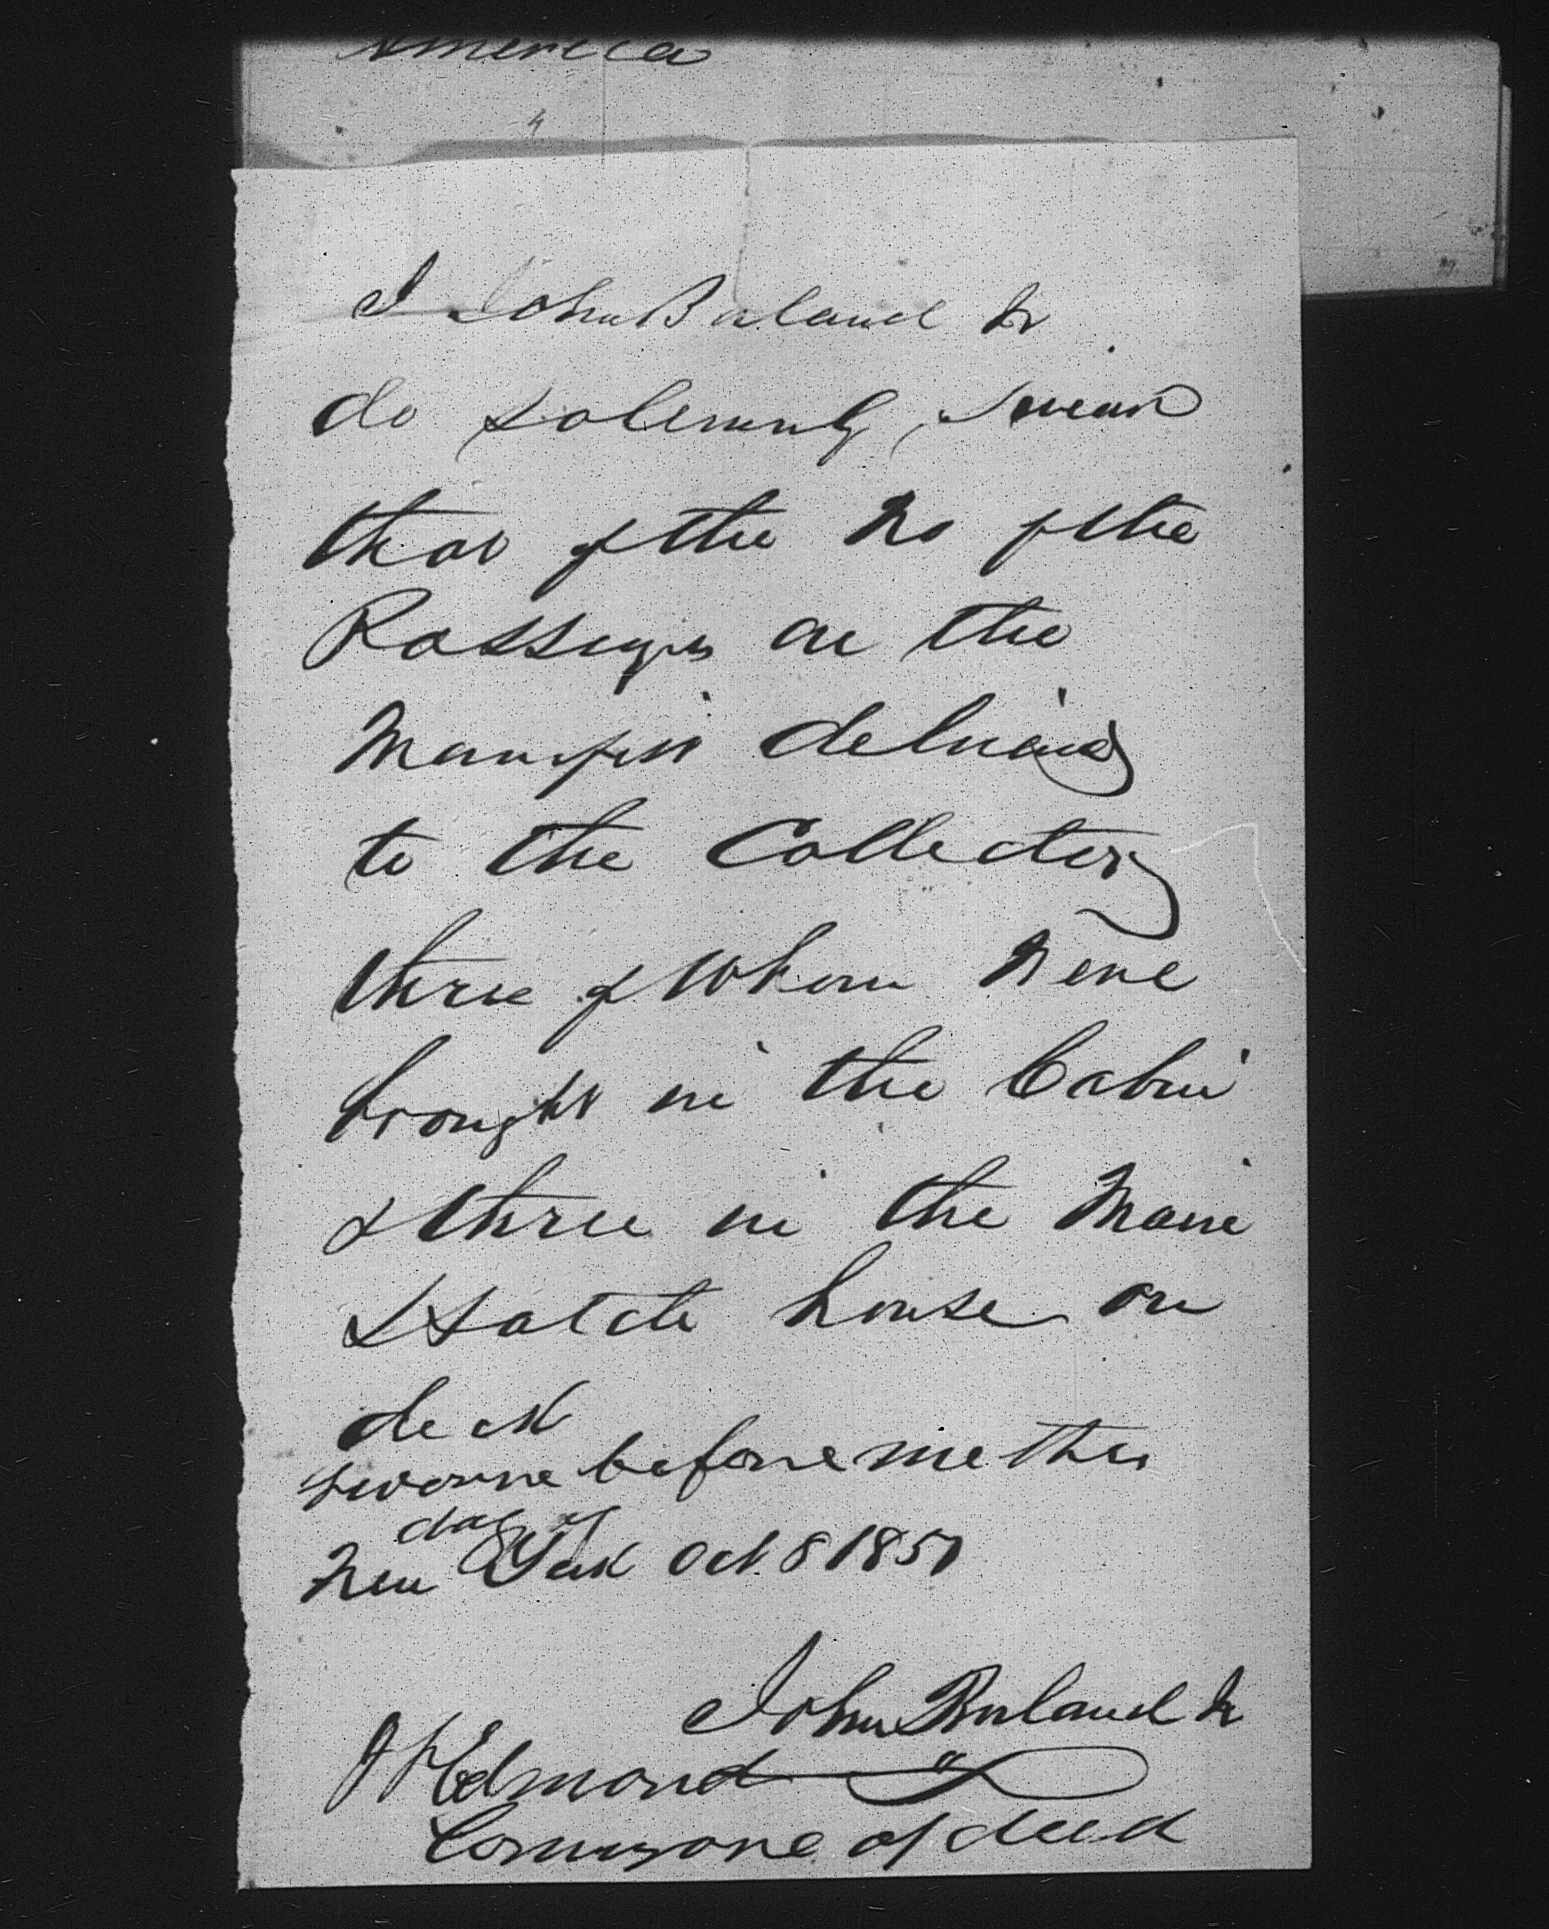 America
4
I John Borland Jr
do solemnly, swear
that of the No of the
Passengers on the
Manifest delivered
to the Collector
three of Whom Were
brought in the Cabin
& three in the Main
Hatch house on
deck
sworne before me this
day of
New York Oct 8 1851
John Borland Jr
Edmond
of deed